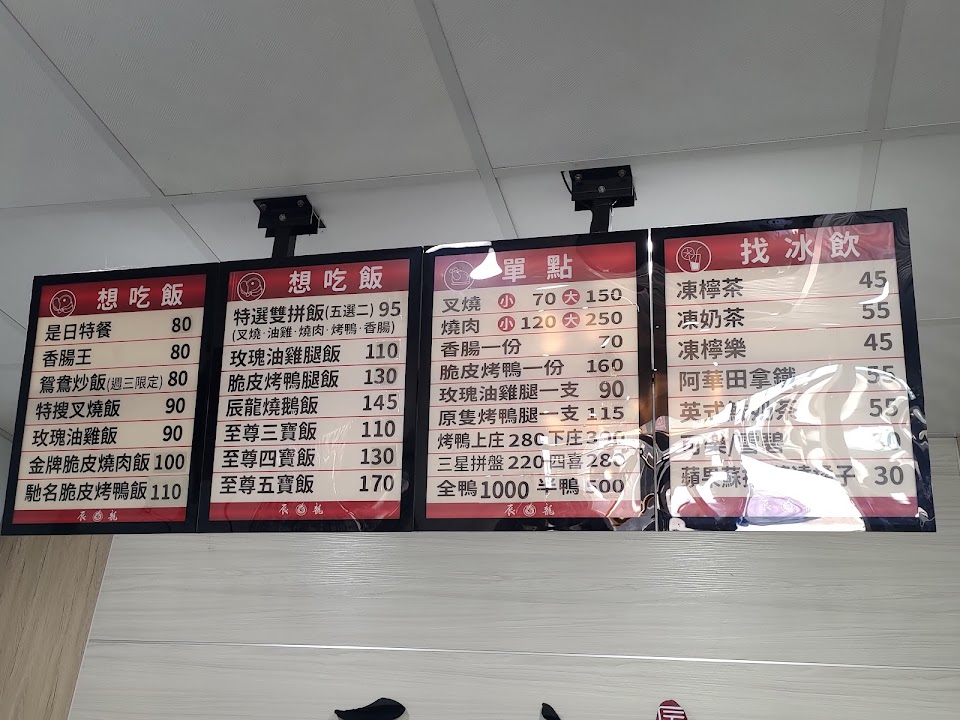 想吃飯
是日特餐 80
香腸王 80
鴛鴦炒飯(週三限定) 80
特搜叉燒飯 90
玫瑰油雞飯 90
金牌脆皮燒肉飯 100
馳名脆皮烤鴨飯 110
辰龍
想吃飯
特選雙拼飯(五選二) 95
(叉燒·油雞·燒肉·烤鴨·香腸)
玫瑰油雞腿飯 110
脆皮烤鴨腿飯 130
辰龍燒鵝飯 145
至尊三寶飯 110
至尊四寶飯 130
至尊五寶飯 170
辰龍
單點
叉燒 小 70 大 150
燒肉 小 120 大 250
香腸一份 70
脆皮烤鴨一份 160
玫瑰油雞腿一支 90
原隻烤鴨腿一支 115
烤鴨上庄 280 下庄 300
三星拼盤 220 四喜 280
全鴨 1000 半鴨 500
辰龍
找冰飲
凍檸茶 45
凍奶茶 55
凍檸樂 45
阿華田拿鐵 55
英式鮮奶茶 55
可樂/雪碧 30
蘋果 子 30